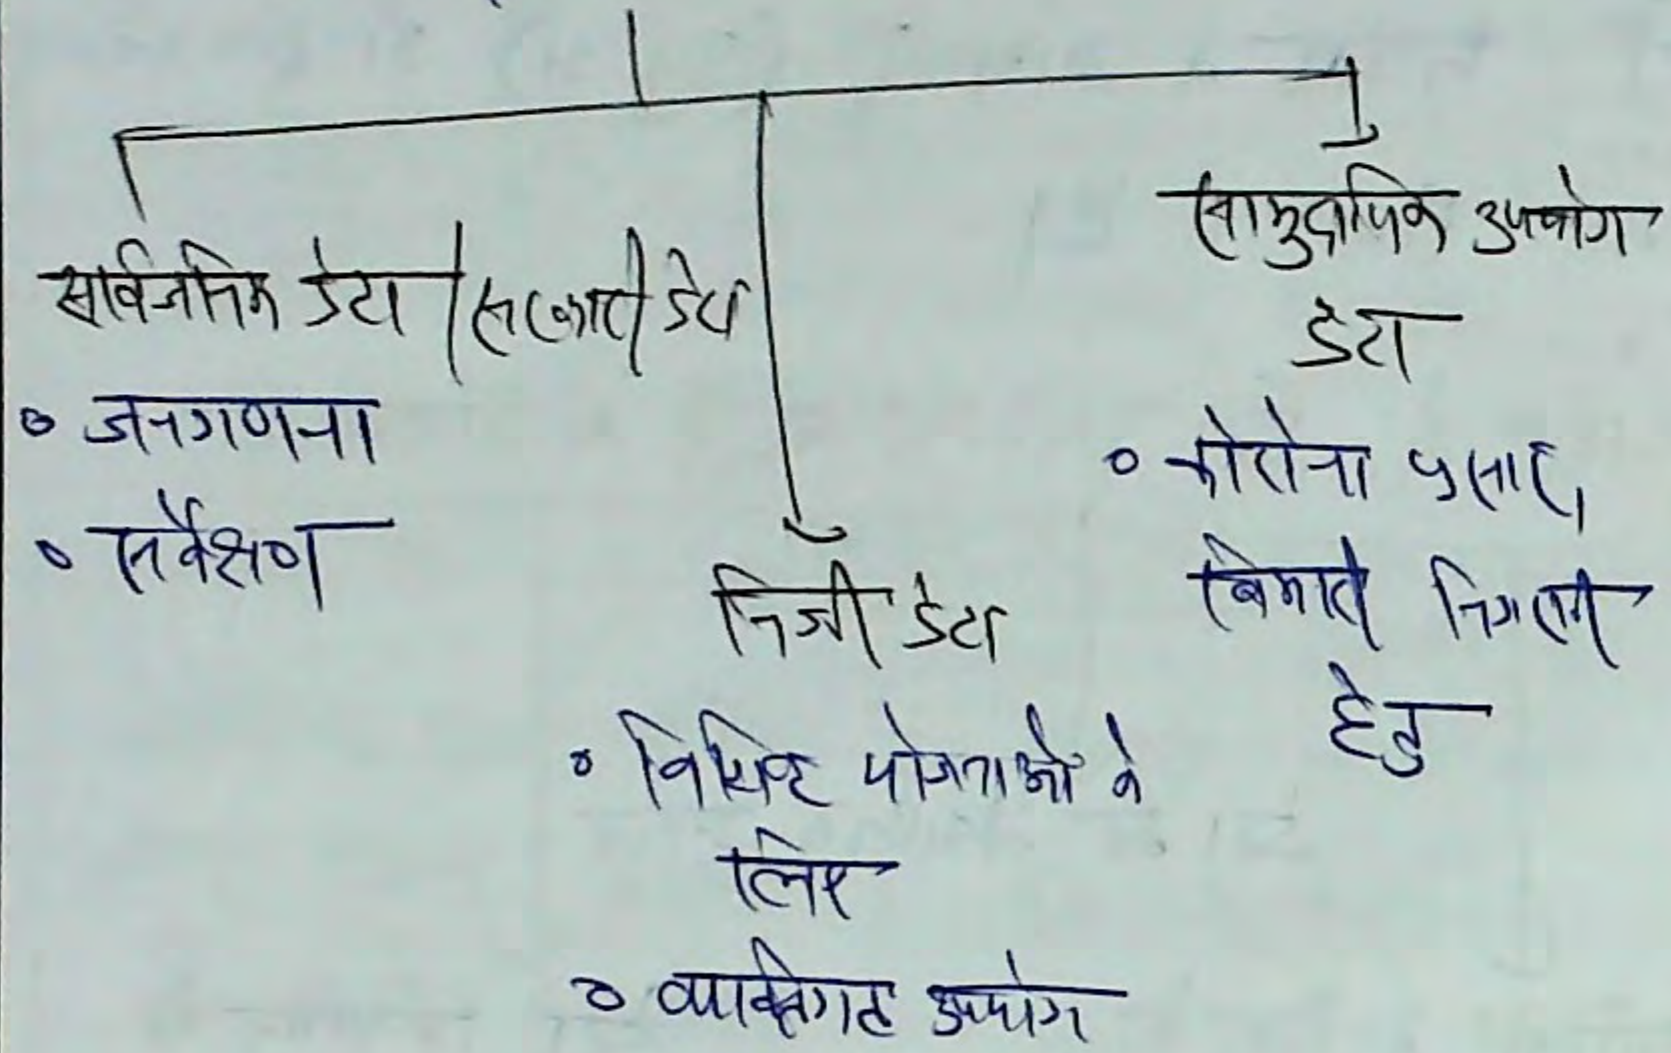 सार्वजनिक डेटा / सरकारी डेटा
० जनगणना
० सर्वेक्षण
निजी डेटा
० विशिष्ट योजनाओं के
लिए
० व्यक्तिगत उपयोग
सामुदायिक उपयोग
डेटा
० कोरोना प्रसार,
बिमारी निगरानी
हेतु